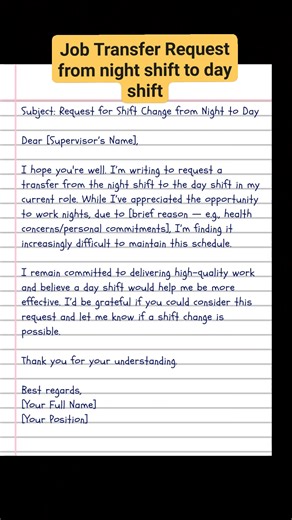 Job Transfer Request
from night shift to day
shift
Subject: Request for Shift Change from Night to Day
Dear [Supervisor's Name],
I hope you're well. I'm writing to request a
transfer from the night shift to the day shift in my
current role. While I've appreciated the opportunity
to work nights, due to [brief reason — e.g., health
concerns/personal commitments], I'm finding it
increasingly difficult to maintain this schedule.
I remain committed to delivering high-quality work
and believe a day shift would help me be more
effective. I'd be grateful if you could consider this
request and let me know if a shift change is
possible.
Thank you for your understanding.
Best regards,
[Your Full Name]
[Your Position]